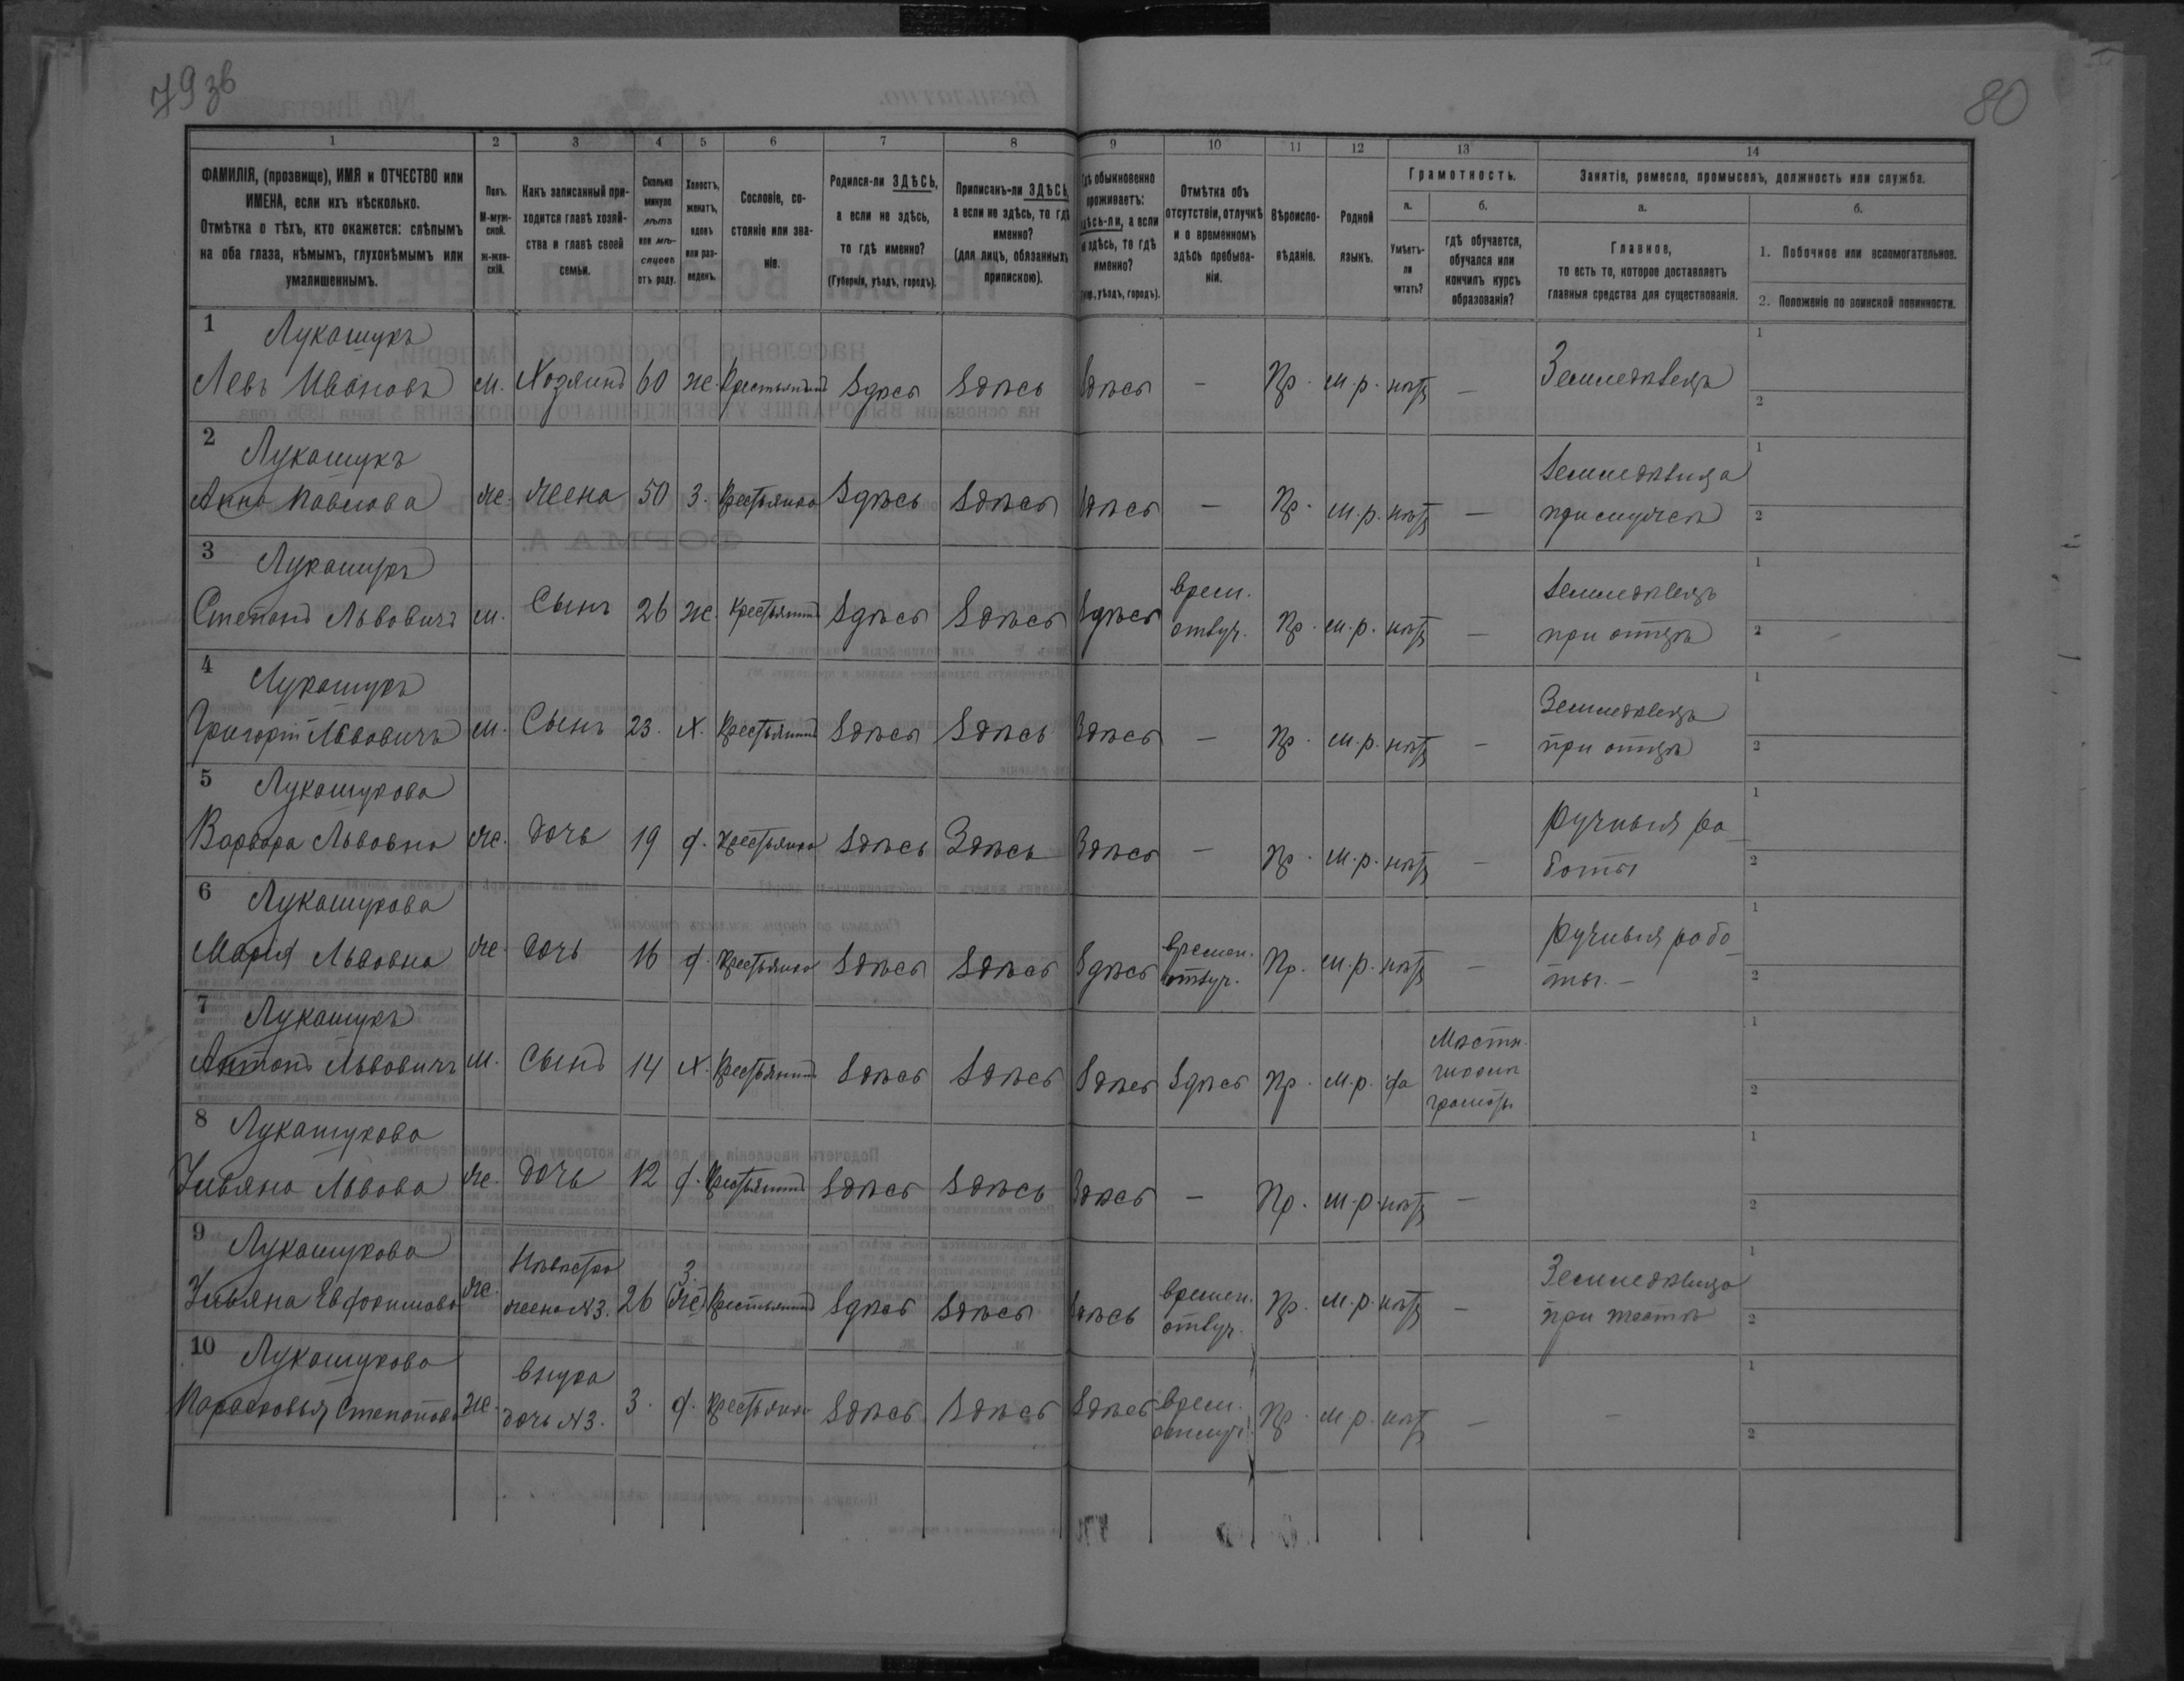 79 зв
80
1 2 3 4 5 6 7 8 9 10 11 12 13 14
ФАМИЛІЯ, (прозвище), ИМЯ и ОТЧЕСТВО или
ИМЕНА, если ихъ нѣсколько.
Отмѣтка о тѣхъ, кто окажется: слѣпымъ
на оба глаза, нѣмымъ, глухонѣмымъ или
умалишеннымъ.
Полъ.
М-муж-
ской.
Ж-жен-
скій.
Какъ записанный при-
ходится главѣ хозяй-
ства и главѣ своей
семьи.
Сколько
минуло
лѣтъ
или мѣ-
сяцевъ
отъ роду.
Холостъ,
женатъ,
вдовъ
или раз-
веденъ.
Сословіе, со-
стояніе или зва-
ніе.
Родился-ли ЗДѢСЬ,
а если не здѣсь,
то гдѣ именно?
(Губернія, уѣздъ, городъ).
Приписанъ-ли ЗДѢСЬ,
а если не здѣсь, то гдѣ
именно?
(для лицъ, обязанныхъ
припискою).
Гдѣ обыкновенно
проживаетъ:
здѣсь-ли, а если
не здѣсь, то гдѣ
именно?
(Губ., уѣздъ, городъ).
Отмѣтка объ
отсутствіи, отлучкѣ
и о временномъ
здѣсь пребыва-
ніи.
Вѣроиспо-
вѣданіе.
Родной
языкъ.
Грамотность.
а.
Умѣетъ-
ли
читать?
б.
гдѣ обучается,
обучался или
кончилъ курсъ
образованія?
Занятіе, ремесло, промыселъ, должность или служба.
а.
Главное,
то есть то, которое доставляетъ
главныя средства для существованія.
б.
1. Побочное или вспомогательное.
2. Положеніе по воинской повинности.
1 Лукашукъ
Левъ Ивановъ м. Хозяинъ 60 ж. Крестьянинъ Здѣсь Здѣсь Здѣсь — Пр. м.р. нѣтъ — Земледѣлецъ 1 2
2 Лукашукъ
Анна Павлова ж. жена 50 з. Крестьянка Здѣсь Здѣсь Здѣсь — Пр. м.р. нѣтъ — Земледѣлица
при мужѣ 1 2
3 Лукашукъ
Степанъ Львовичъ м. Сынъ 26 ж. Крестьянинъ Здѣсь Здѣсь Здѣсь врем.
отлуч. Пр. м.р. нѣтъ — Земледѣлецъ
при отцѣ 1 2
4 Лукашукъ
Григорій Львовичъ м. Сынъ 23. х. Крестьянинъ Здѣсь Здѣсь Здѣсь — Пр. м.р. нѣтъ — Земледѣлецъ
при отцѣ 1 2
5 Лукашукова
Варвара Львовна ж. дочь 19 д. Крестьянка Здѣсь Здѣсь Здѣсь — Пр. м.р. нѣтъ — ручныя ра-
боты 1 2
6 Лукашукова
Марія Львовна ж. дочь 16 д. Крестьянка Здѣсь Здѣсь Здѣсь времен.
отлуч. Пр. м.р. нѣтъ — ручныя рабо-
ты. — 1 2
7 Лукашукъ
Антонъ Львовичъ м. сынъ 14 х. Крестьянинъ Здѣсь Здѣсь Здѣсь Здѣсь Пр. м.р. да
школѣ
грамоты 1 2
8 Лукашукова
Ульяна Львова ж. дочь 12 д. Крестьянинъ Здѣсь Здѣсь Здѣсь — Пр. м.р. нѣтъ — 1 2
9 Лукашукова
Ульяна Евфимова ж. Невѣстка
жена №3. 26 з. (ж) Крестьянинъ Здѣсь Здѣсь Здѣсь времен.
отлуч. Пр. м.р. нѣтъ — Земледѣлица
1 2
10 Лукашукова
Парасковья Степанова ж. внука
дочь №3. 3. д. Крестьянка Здѣсь Здѣсь Здѣсь врем.
отлуч. Пр. м.р. нѣтъ — — 1 2